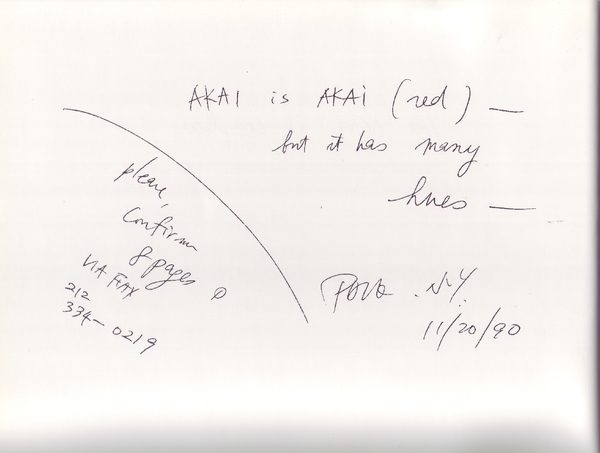 AKAI is AKAi (red) —
but it has many
hues —
please,
Confirm
8 pages
VIA FAX
212
334-0219
PAIK . N.Y.
11/20/90